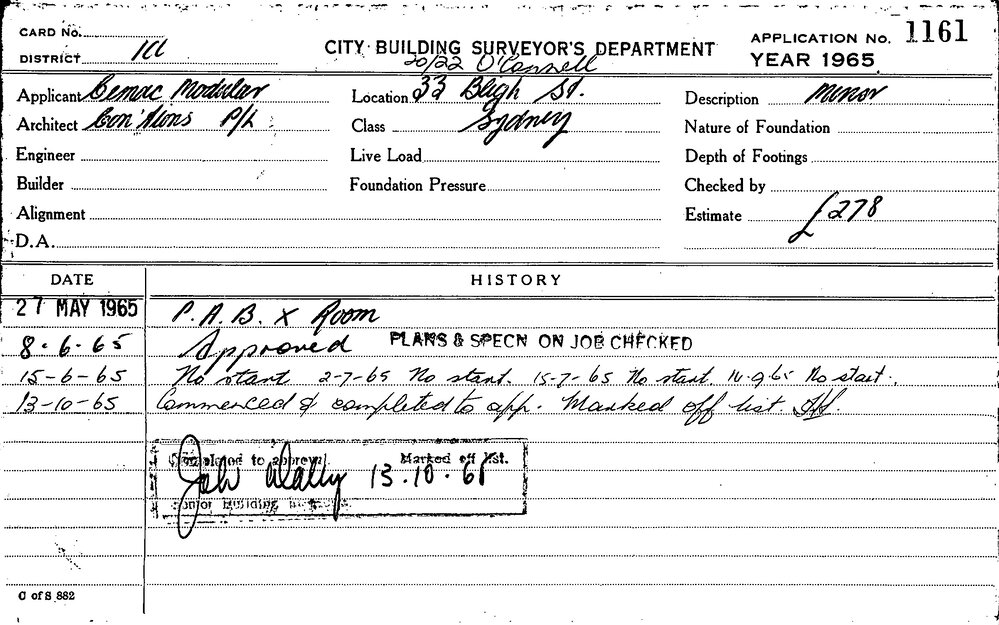 CARD No.
DISTRICT 1Cl
CITY BUILDING SURVEYOR'S DEPARTMENT
20/22 O'Connell
APPLICATION No. 1161
YEAR 1965
Applicant Cemac Modular
Location 33 Bligh St.
Description Minor
Architect Con'tions P/L
Class Sydney
Nature of Foundation
Engineer
Live Load
Depth of Footings
Builder
Foundation Pressure
Checked by
Alignment
Estimate £278
D.A.
DATE HISTORY
27 MAY 1965 P.A.B. X Room
8-6-65 Approved PLANS & SPECN ON JOB CHECKED
15-6-65 No start 2-7-65 No start. 15-7-65 No start 14-9-65 No start.
13-10-65 Commenced & completed to app. Marked off list.
Completed to approval Marked off list.
13.10.65
Senior Building
C of S 882